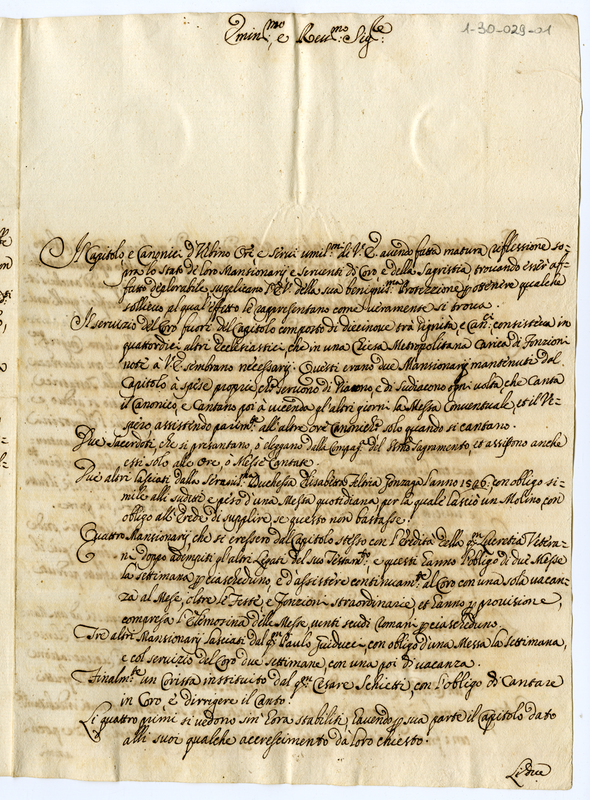 1-30-029-01
Emin.mo e Reu.mo Sig.re
Il Capitolo e Canonici d'Vrbino Ore e Servi umil.mi di V. E. auendo fatta matura reflessione so=
pra lo stato de loro Mansionarij e Seruenti di Coro e della Sagristia, trouando esser af=
fatto deplorabile suplicano l'E.V. della sua benignis.ma Protezzione p ottenere qualche
sollieuo, al qual'effetto le rapresentano come ueramente si troua.
Il seruizio del Coro fuori del Capitolo composto di diecinoue trà dignità, e Can.ci consisteua in
quattordici altri ecclesiastici, che in una Chiesa Metropolitana Carica di fonzioni
note à V.E. sembrano necessarij. Questi erano due Mansionarij mantenuti dal
Capitolo à spese proprie, che seruono di Diacono, e di Sudiacono ogni volta, che Canta
il Canonico, e Cantano poi à vicenda gl'altri giorni la Messa Conuentuale, et il Ve=
spero assistendo parim.te all'altre ore Canoniche solo quando si cantano.
Due Sacerdoti, che si presentano, ò elegano dalla Compag.a del Ss.mo Sagramento, et assistono anche
essi solo alle Ore, ò Messe Cantate.
Due altri lasciati dalla Serenis.ma Duchessa Elisabetta Feltria Gonzaga l'anno 1526 con obligo si=
mile alli sudeti e peso d'una Messa quotidiana per la quale lasciò un Molino, con
obligo all'Erede di supplire se questo non bastasse.
Quattro Mansionarij che si eressero dal Capitolo stesso con l'eredità della q.m Lucretia Vetera=
ni doppo adempiti gl'altri Legati del suo Testam.to, e questi hanno l'obligo di due Messe
la settimana p ciascheduno, e d'assistere continuam.te al Coro con una sola uacan=
za al Mese, oltre le Feste, e Fonzioni straordinarie, et hanno p prouisione,
compresa l'Elemosina delle Messe, uenti scudi Romani p ciascheduno.
Tre altri Mansionarij lasciati dal q.m Paulo Guiducci, con obligo d'una Messa la settimana,
e col seruizio del Coro due settimane, con una poi di uacanza.
Finalm.te un Corista instituito dal q.m Cesare Schietti, con l'obligo di Cantare
in Coro, e dirrigere il Canto.
Li quattro primi si uedono sin'hora stabiliti, hauendo p sua parte il Capitolo dato
alli suoi qualche accrescimento da loro chiesto.
Li due